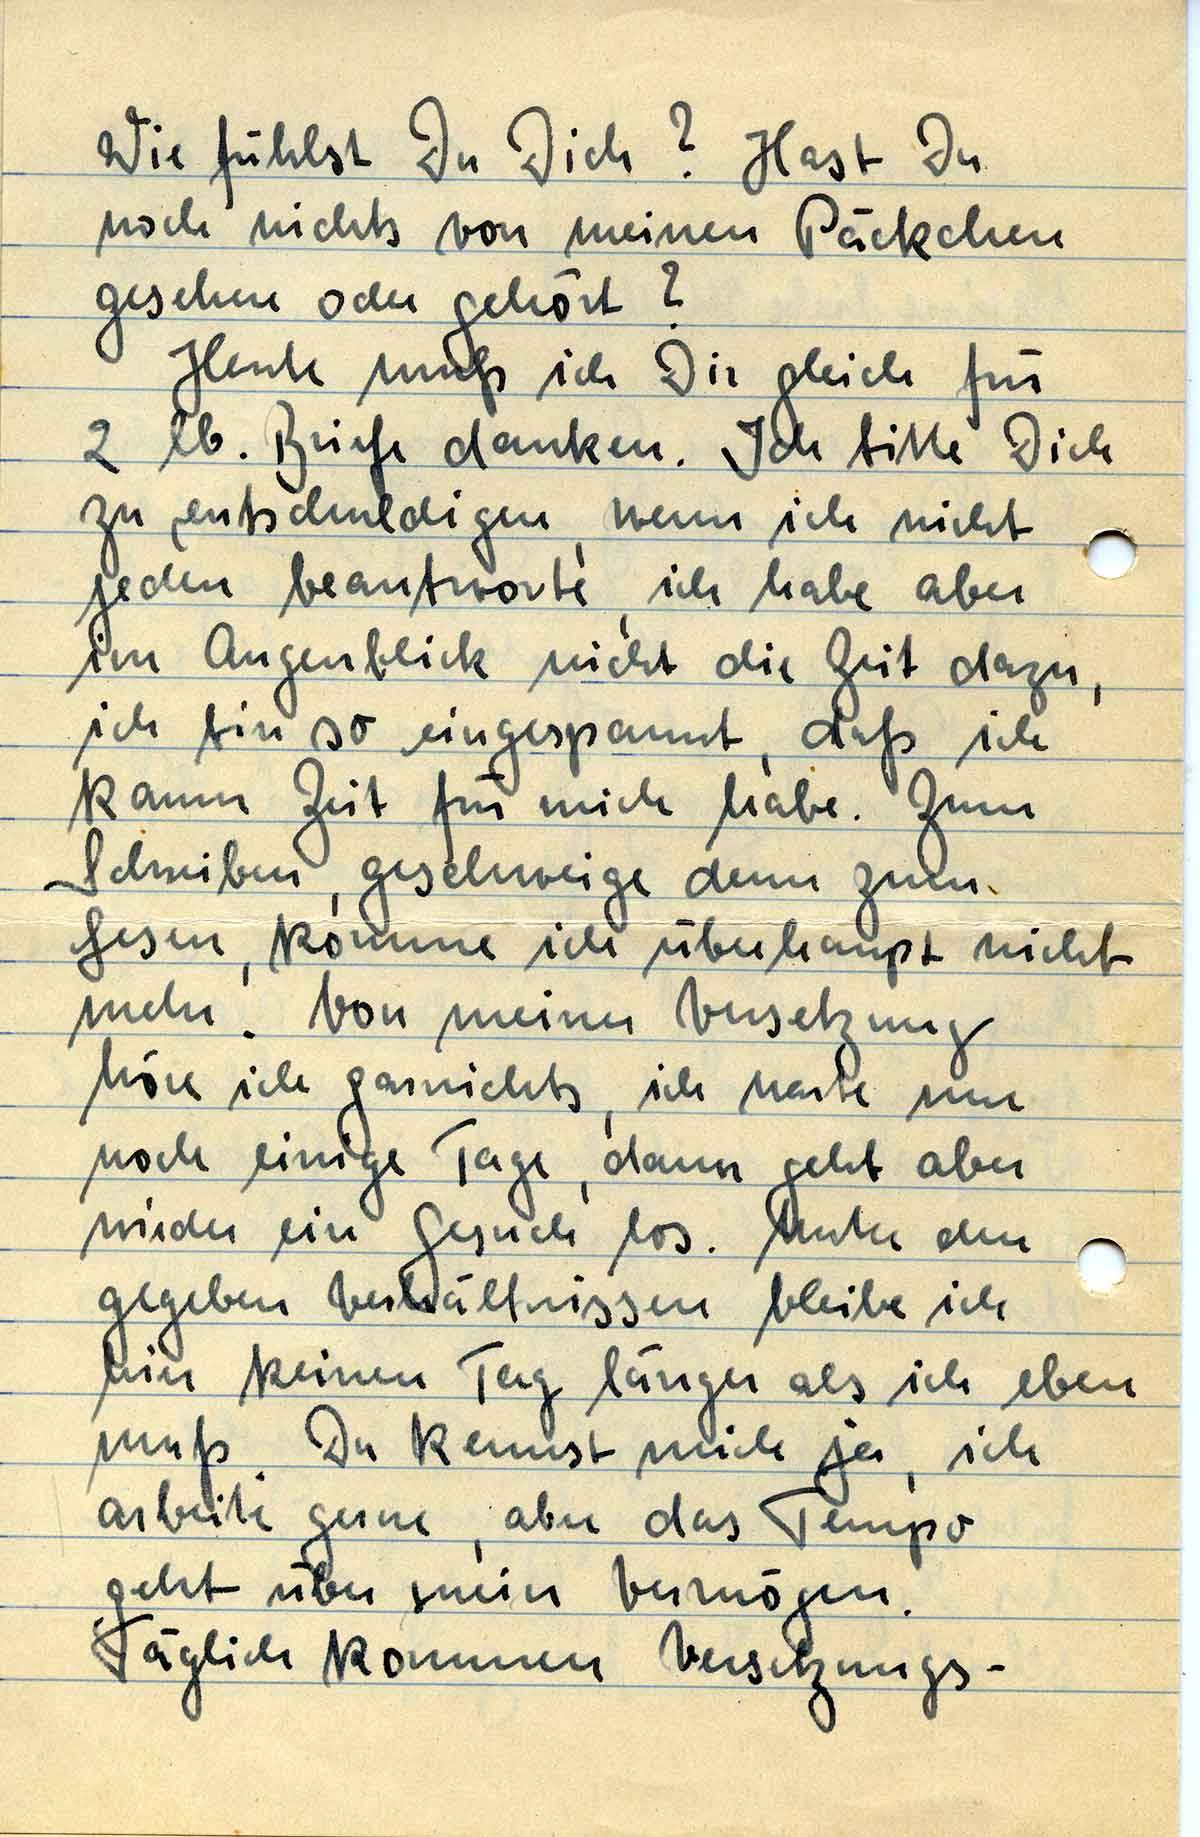 Wie fühlst Du Dich? Hast Du
noch nichts von meinen Päckchen
gesehen oder gehört?
Heute muß ich Dir gleich für
2 lb. Briefe danken. Ich bitte Dich
zu entschuldigen, wenn ich nicht
jeden beantworte, ich habe aber
im Augenblick nicht die Zeit dazu,
ich bin so eingespannt, daß ich
kaum Zeit für mich habe. Zum
Schreiben, geschweige denn zum
Lesen, komme ich überhaupt nicht
mehr. Von meiner Versetzung
höre ich garnichts, ich warte nur
noch einige Tage, dann geht aber
wieder ein Gesuch los. Unter den
gegeben Verhältnissen bleibe ich
hier keinen Tag länger als ich eben
muß. Du kennst mich ja, ich
arbeite gerne, aber das Tempo
geht über mein Vermögen.
Täglich kommen Versetzungs-